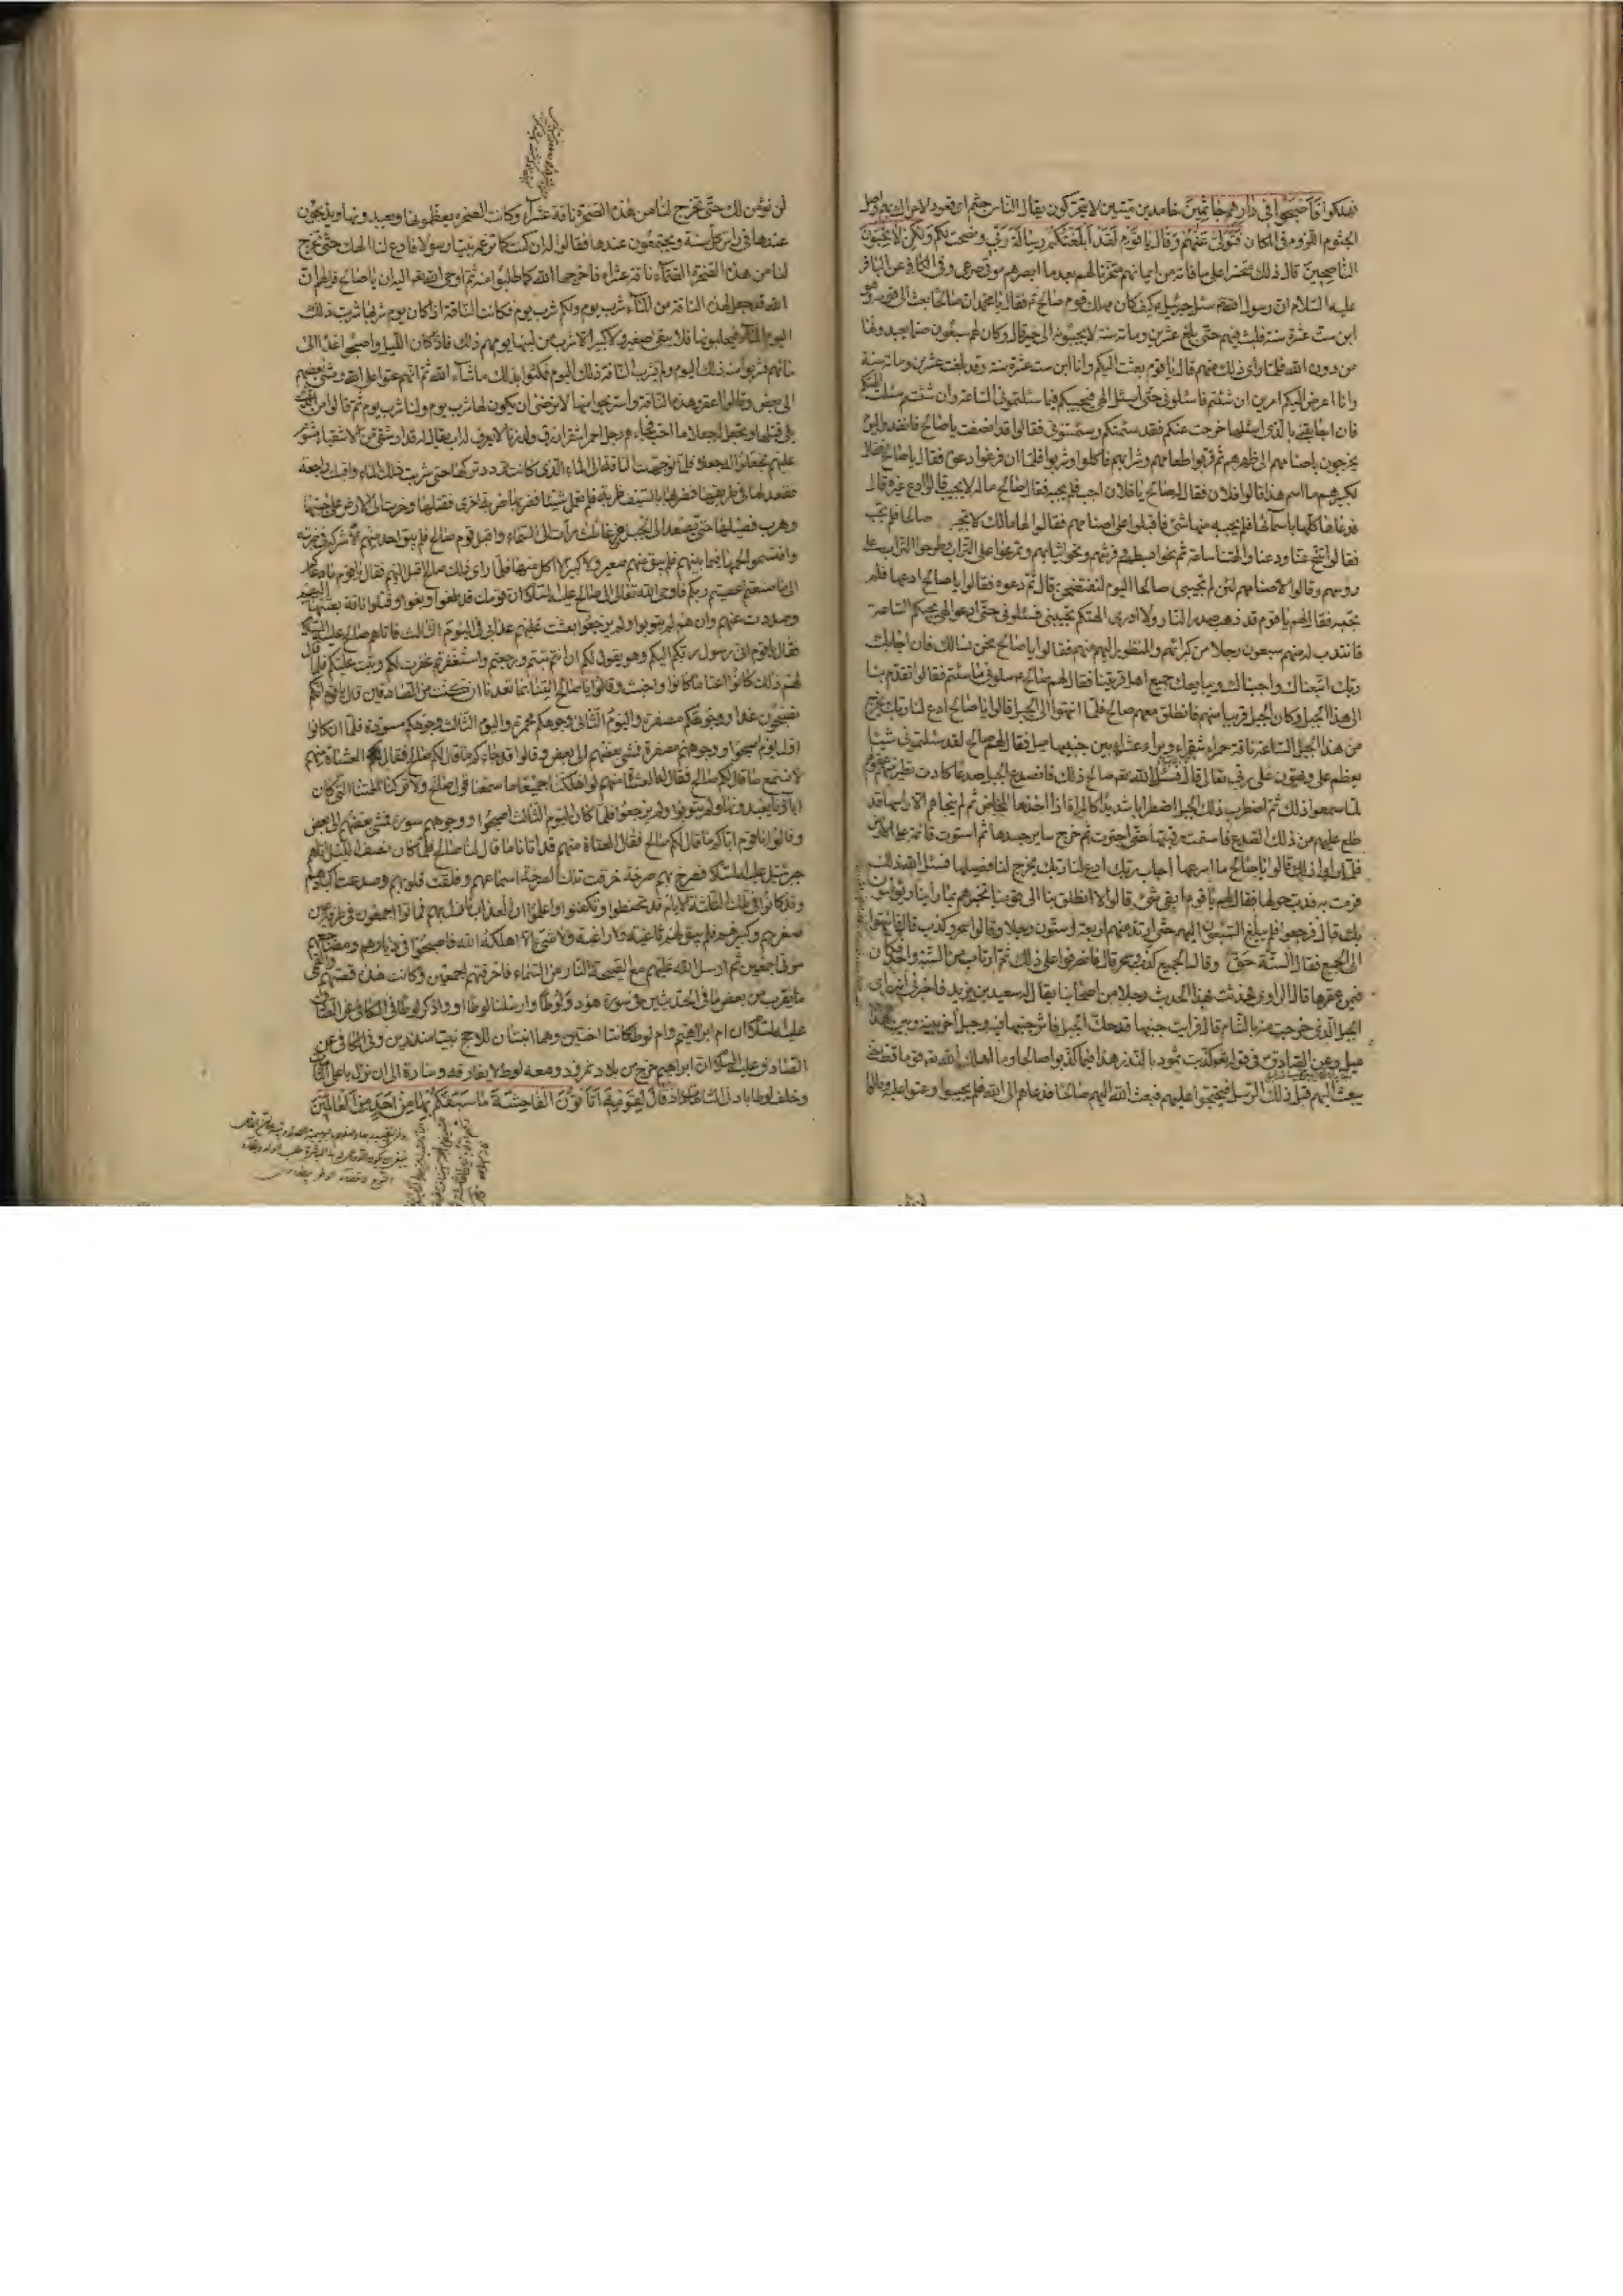 فهلكوا فَأَصْبَحُوا فِي دَارِهِمْ جَاثِمِينَ خامدين ميتين لا يتحركون يقال الناس جثم اى قعود لا حراك بهم واصل
الجثوم اللزوم فى المكان فَتَوَلَّىٰ عَنْهُمْ وَقَالَ يَا قَوْمِ لَقَدْ أَبْلَغْتُكُمْ رِسَالَةَ رَبِّي وَنَصَحْتُ لَكُمْ وَلَكِنْ لَا تُحِبُّونَ
النَّاصِحِينَ قال ذلك متحسرا على ما فاته من ايمانهم متحزنا لهم بعد ما ابصرهم موتى صرعى وفى الكافى عن الباقر
عليه السلام ان رسول الله سئل جبرئيل كيف كان مهلك قوم صالح فقال يا محمد ان صالحا بعث الى قومه وهو
ابن ست عشرة سنة فلبث فيهم حتى بلغ عشرين ومائة سنة لا يجيبونه الى خير قال وكان لهم سبعون صنما يعبدونها
من دون الله فلما راى ذلك منهم قال يا قوم بعثت اليكم وانا ابن ست عشرة سنة وقد بلغت عشرين ومائة سنة
وانا اعرض اليكم امرين ان شئتم فاسئلونى حتى اسئل الهى فيجيبكم فيما سئلتمونى الساعة وان شئتم سئلت الهتكم
فان اجابتنى بالذى اسئلها خرجت عنكم فقد سئمتكم وسئمتمونى فقالوا قد انصفت يا صالح فاتعدوا ليوم
يخرجون باصنامهم الى ظهرهم ثم قربوا طعامهم وشرابهم فاكلوا وشربوا فلما ان فرغوا دعوه فقالوا يا صالح سل
لكبيرهم ما اسم هذا قالوا فلان فقال له صالح يا فلان اجب فلم يجبه فقال صالح ما له لا يجيب قالوا ادع غيره قال
فدعاها كلها باسمائها فلم يجبه منها شئ فاقبلوا على اصنامهم فقالوا لها مالك لا تجيبين صالحا فلم تجب
فقالوا تنح عنا ودعنا والهتنا ساعة ثم نحوا بسطهم وفرشهم ونحوا ثيابهم وتمرغوا على التراب وطرحوا التراب على
رؤسهم وقالوا لاصنامهم لئن لم تجيبى صالحا اليوم لنفتضحن قال ثم دعوه فقالوا يا صالح ادعها فلم
تجبه فقال لهم يا قوم قد ذهب صدر النهار ولا ارى الهتكم تجيبنى فسئلونى حتى ادعو الهى فيجيبكم الساعة
فانتدب له منهم سبعون رجلا من كبرائهم والمنظور اليهم منهم فقالوا يا صالح نحن نسالك فان اجابك
ربك اتبعناك واجبناك ويبايعك جميع اهل قريتنا فقال لهم صالح سلونى ما شئتم فقالوا تقدم بنا
الى هذا الجبل وكان الجبل قريبا منهم فانطلق معهم صالح فلما انتهوا الى الجبل قالوا يا صالح ادع لنا ربك يخرج
من هذا الجبل الساعة ناقة حمراء شقراء وبراء عشراء بين جنبيها ميل فقال لهم صالح لقد سئلتمونى شيئا
يعظم على ويهون على ربى تعالى قال فسئل الله صالح ذلك فانصدع الجبل صدعا كادت تطير منه عقولهم
لما سمعوا ذلك ثم اضطرب ذلك الجبل اضطرابا شديدا كالمراة اذا اخذها المخاض ثم لم يفجاهم الا راسها قد
طلع عليهم من ذلك الصدع فما استتمت رقبتها حتى اجترت ثم خرج سائر جسدها ثم استوت قائمة على الارض
فلما راوا ذلك قالوا يا صالح ما اسرع ما اجابك ربك ادع لنا ربك يخرج لنا فصيلها فسئل الله ذلك
فرمت به فدب حولها فقال لهم يا قوم ابقى شئ قالوا لا انطلق بنا الى قومنا نخبرهم بما راينا ويؤمنون
بك قال فرجعوا فلم يبلغ السبعون اليهم حتى ارتد منهم اربعة وستون رجلا وقالوا سحر وكذب قال فانتهوا
الى الجميع فقال الستة حق وقال الجميع كذب وسحر قال فانصرفوا على ذلك ثم ارتاب من الستة واحد فكان
فيمن عقرها قال الراوى فحدثت بهذا الحديث رجلا من اصحابنا يقال له سعيد بن يزيد فاخبرنى انه راى
الجبل الذى خرجت منه بالشام قال فرايت جنبها قد حك الجبل فاثر جنبها فيه وجبل اخر بينه وبين هذا
ميل وعن الصادق فى قوله كذبت ثمود بالنذر هذا فيما كذبوا صالحا وما اهلك الله قوما قط حتى
يبعث اليهم قبل ذلك الرسل فيحتجوا عليهم فبعث الله اليهم صالحا فدعاهم الى الله فلم يجيبوا وعتوا عليه وقالوا
لن نؤمن لك حتى تخرج لنا من هذه الصخرة ناقة عشراء وكانت الصخرة يعظمونها ويعبدونها ويذبحون
عندها فى راس كل سنة ويجتمعون عندها فقالوا له ان كنت كما تزعم نبيا رسولا فادع لنا الهك حتى يخرج
لنا من هذه الصخرة الصماء ناقة عشراء فاخرجها الله كما طلبوا منه ثم اوحى الله اليه ان يا صالح قل لهم ان
الله قد جعل لهذه الناقة من الماء شرب يوم ولكم شرب يوم فكانت الناقة اذا كان يوم شربها شربت ذلك
اليوم الماء فيحلبونها فلا يبقى صغير ولا كبير الا شرب من لبنها يومهم ذلك فاذا كان الليل واصبحوا غدوا الى
مائهم فشربوا منه ذلك اليوم ولم تشرب الناقة ذلك اليوم فمكثوا بذلك ما شاء الله ثم انهم عتوا على الله ومشى بعضهم
الى بعض وقالوا اعقروا هذه الناقة واستريحوا منها لا نرضى ان يكون لها شرب يوم ولنا شرب يوم ثم قالوا من الذى
يلى قتلها ونجعل له جعلا ما احب فجاءهم رجل احمر اشقر ازرق ولد زنا لا يعرف له اب يقال له قدار شقى من الاشقياء مشئوم
عليهم فجعلوا له جعلا فلما توجهت الناقة الى الماء الذى كانت ترده تركها حتى شربت ذلك الماء واقبلت راجعة
فقعد لها فى طريقها فضربها بالسيف ضربة فلم تعمل شيئا فضربها ضربة اخرى فقتلها وخرت الى الارض على جنبها
وهرب فصيلها حتى صعد الى الجبل فرغا ثلث مرات الى السماء واقبل قوم صالح فلم يبق احد منهم الا شركه فى ضربته
واقتسموا لحمها فيما بينهم فلم يبق منهم صغير ولا كبير الا اكل منها فلما راى ذلك صالح اقبل اليهم فقال يا قوم ما دعاكم
الى ما صنعتم اعصيتم ربكم فاوحى الله تعالى الى صالح عليه السلام ان قومك قد طغوا وبغوا وقتلوا ناقة بعثتها
فقال يا قوم انى رسول ربكم اليكم وهو يقول لكم ان انتم تبتم ورجعتم واستغفرتم غفرت لكم وتبت عليكم فلما قال
لهم ذلك كانوا اعتا ما كانوا واخبث وقالوا يا صالح ائتنا بما تعدنا ان كنت من الصادقين قال يا قوم انكم
تصبحون غدا ووجوهكم مصفرة واليوم الثانى وجوهكم محمرة واليوم الثالث وجوهكم مسودة فلما ان كانوا
اول يوم اصبحوا ووجوههم مصفرة فمشى بعضهم الى بعض وقالوا قد جاءكم ما قال لكم صالح فقال العتاة منهم
لا نسمع ما قال لكم صالح
اباؤنا يعبدونها ولم يتوبوا ولم يرجعوا فلما كان اليوم الثالث اصبحوا ووجوههم مسودة فمشى بعضهم الى بعض
وقالوا يا قوم اتاكم ما قال لكم صالح فقال العتاة منهم قد اتانا ما قال لنا صالح فلما كان نصف الليل اتاهم
جبرئيل عليه السلام فصرخ بهم صرخة خرقت تلك الصرخة اسماعهم وفلقت قلوبهم وصدعت اكبادهم
وقد كانوا فى تلك الثلثة الايام قد تحنطوا وتكفنوا وعلموا ان العذاب نازل بهم فماتوا اجمعون فى طرفة عين
صغيرهم وكبيرهم فلم يبق لهم ثاغية ولا راغية ولا شئ الا اهلكه الله فاصبحوا فى ديارهم ومضاجعهم
موتى اجمعين ثم ارسل الله عليهم مع الصيحة النار من السماء فاحرقتهم اجمعين وكانت هذه قصتهم
ما يقرب من بعض ما فى الحديثين فى سورة هود وَلُوطًا وارسلنا لوطا او واذكر لوطا فى الكافى عن
عليه السلام ان ام ابراهيم وام لوط كانتا اختين وهما ابنتان للاحج نبيا منذرين وفى الكافى عن
الصادق عليه السلام ان ابراهيم خرج من بلاد نمرود ومعه لوط لا يفارقه وسارة الى ان نزل باعلى الشامات
وخلف لوطا بادنى الشامات إِذْ قَالَ لِقَوْمِهِ أَتَأْتُونَ الْفَاحِشَةَ مَا سَبَقَكُمْ بِهَا مِنْ أَحَدٍ مِنَ الْعَالَمِينَ